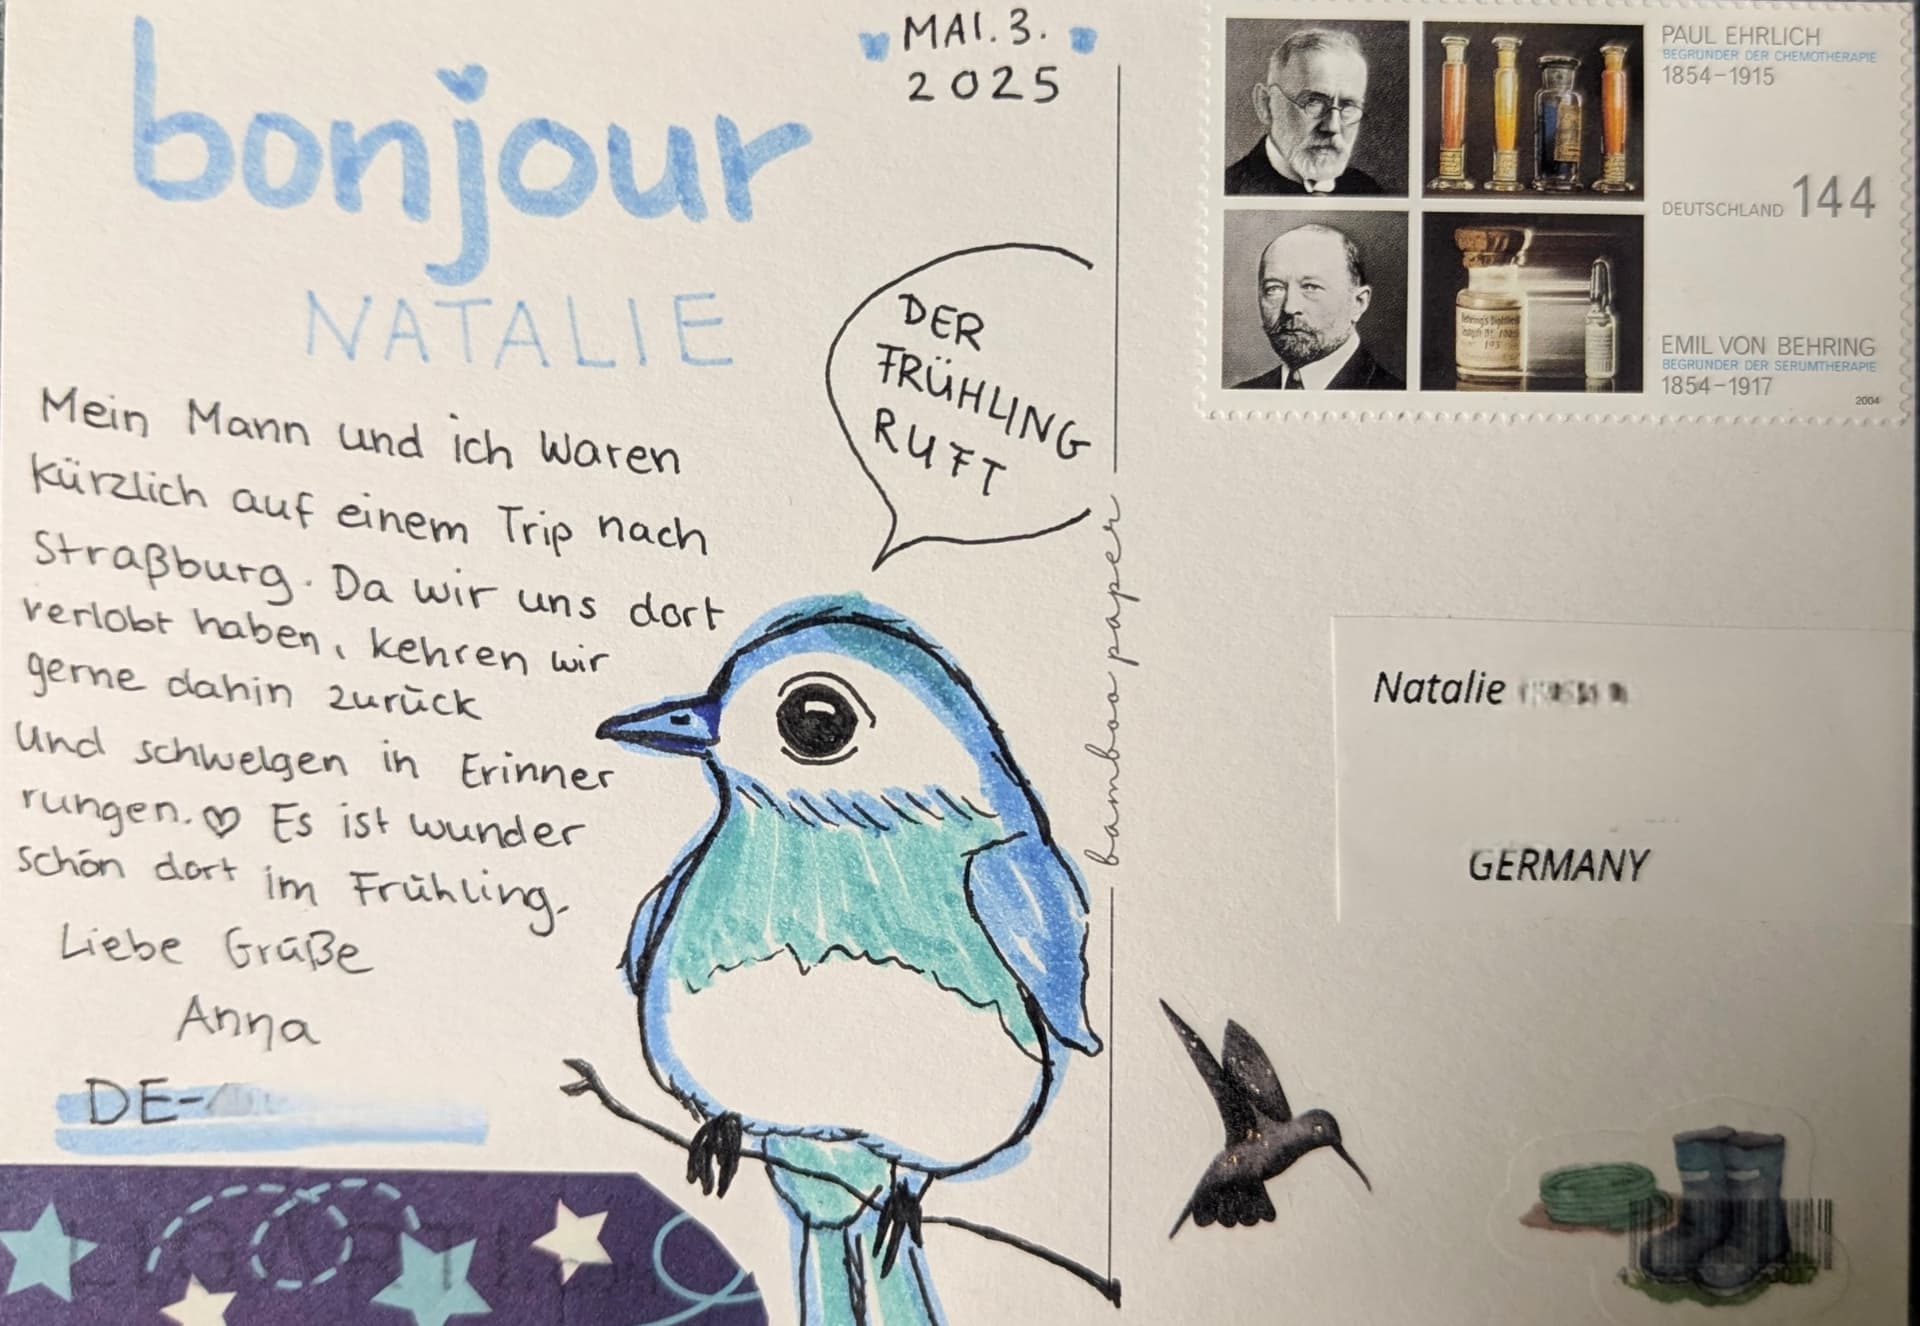 bonjour
NATALIE
MAI. 3.
2025
Mein Mann und ich waren
kürzlich auf einem Trip nach
Straßburg. Da wir uns dort
verlobt haben, kehren wir
gerne dahin zurück
und schwelgen in Erinner
rungen. ♡ Es ist wunder
schön dort im Frühling.
Liebe Grüße
Anna
DE-
DER
FRÜHLING
RUFT
bamboo paper
PAUL EHRLICH
BEGRÜNDER DER CHEMOTHERAPIE
1854–1915
DEUTSCHLAND 144
EMIL VON BEHRING
BEGRÜNDER DER SERUMTHERAPIE
1854–1917
2004
Natalie
GERMANY